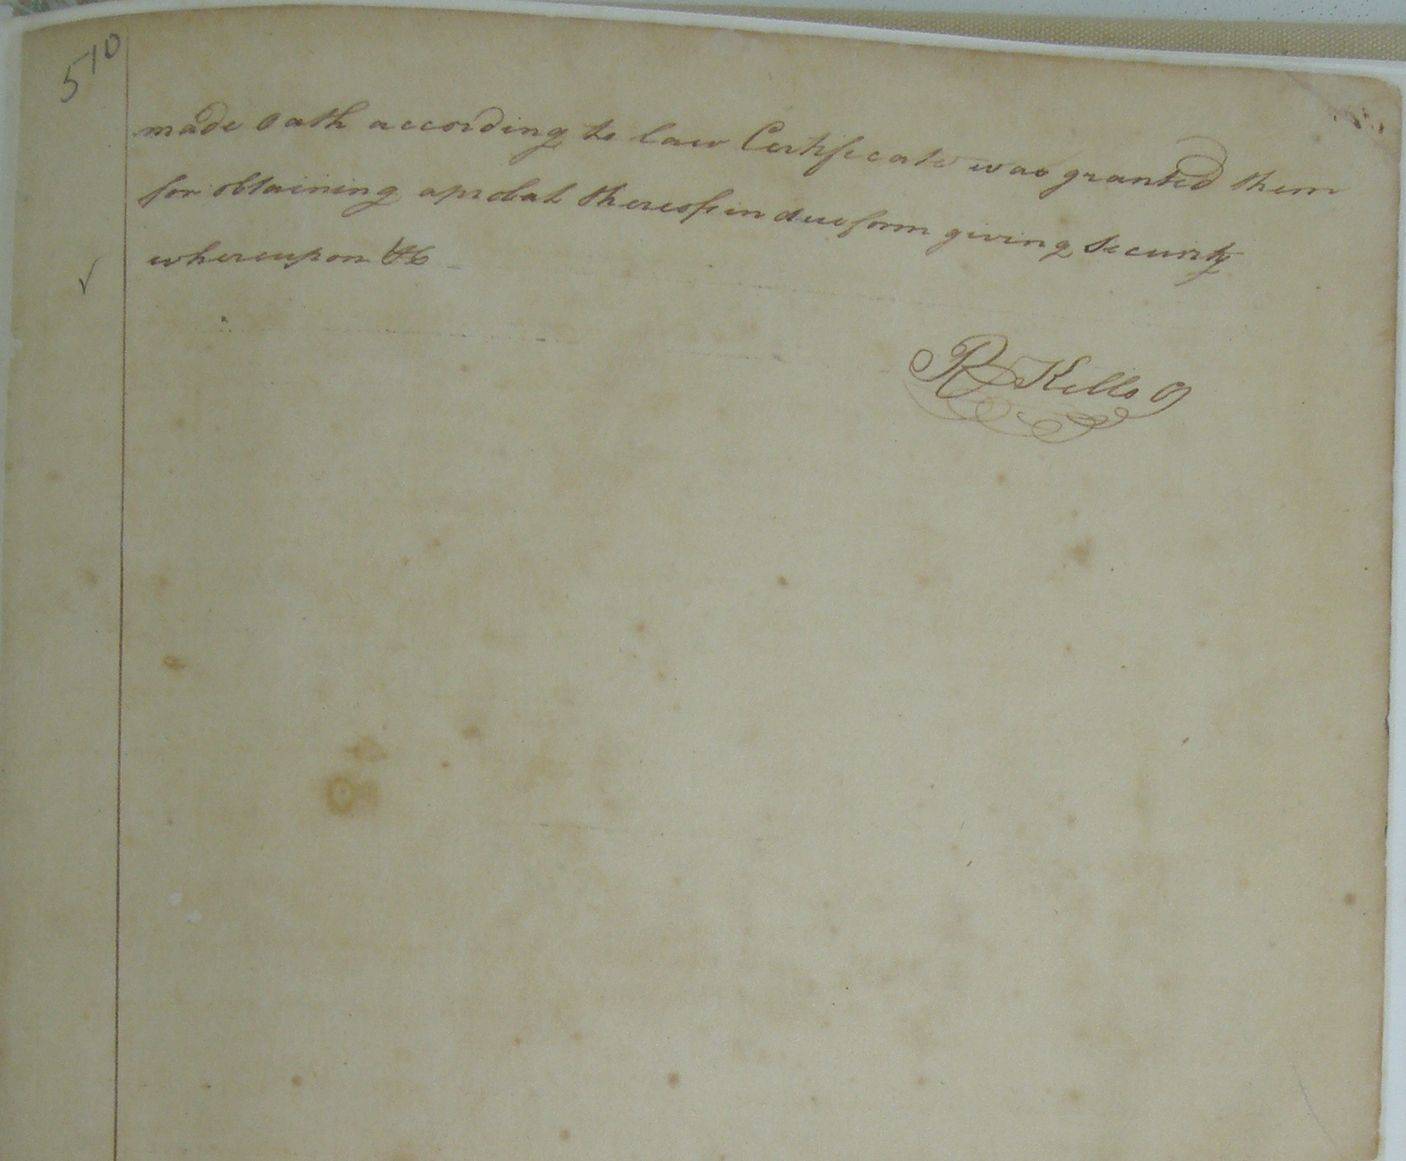 510
made Oath according to law Certificate was granted them
for obtaining a probat thereof in due form giving security
whereupon &c
R Kello